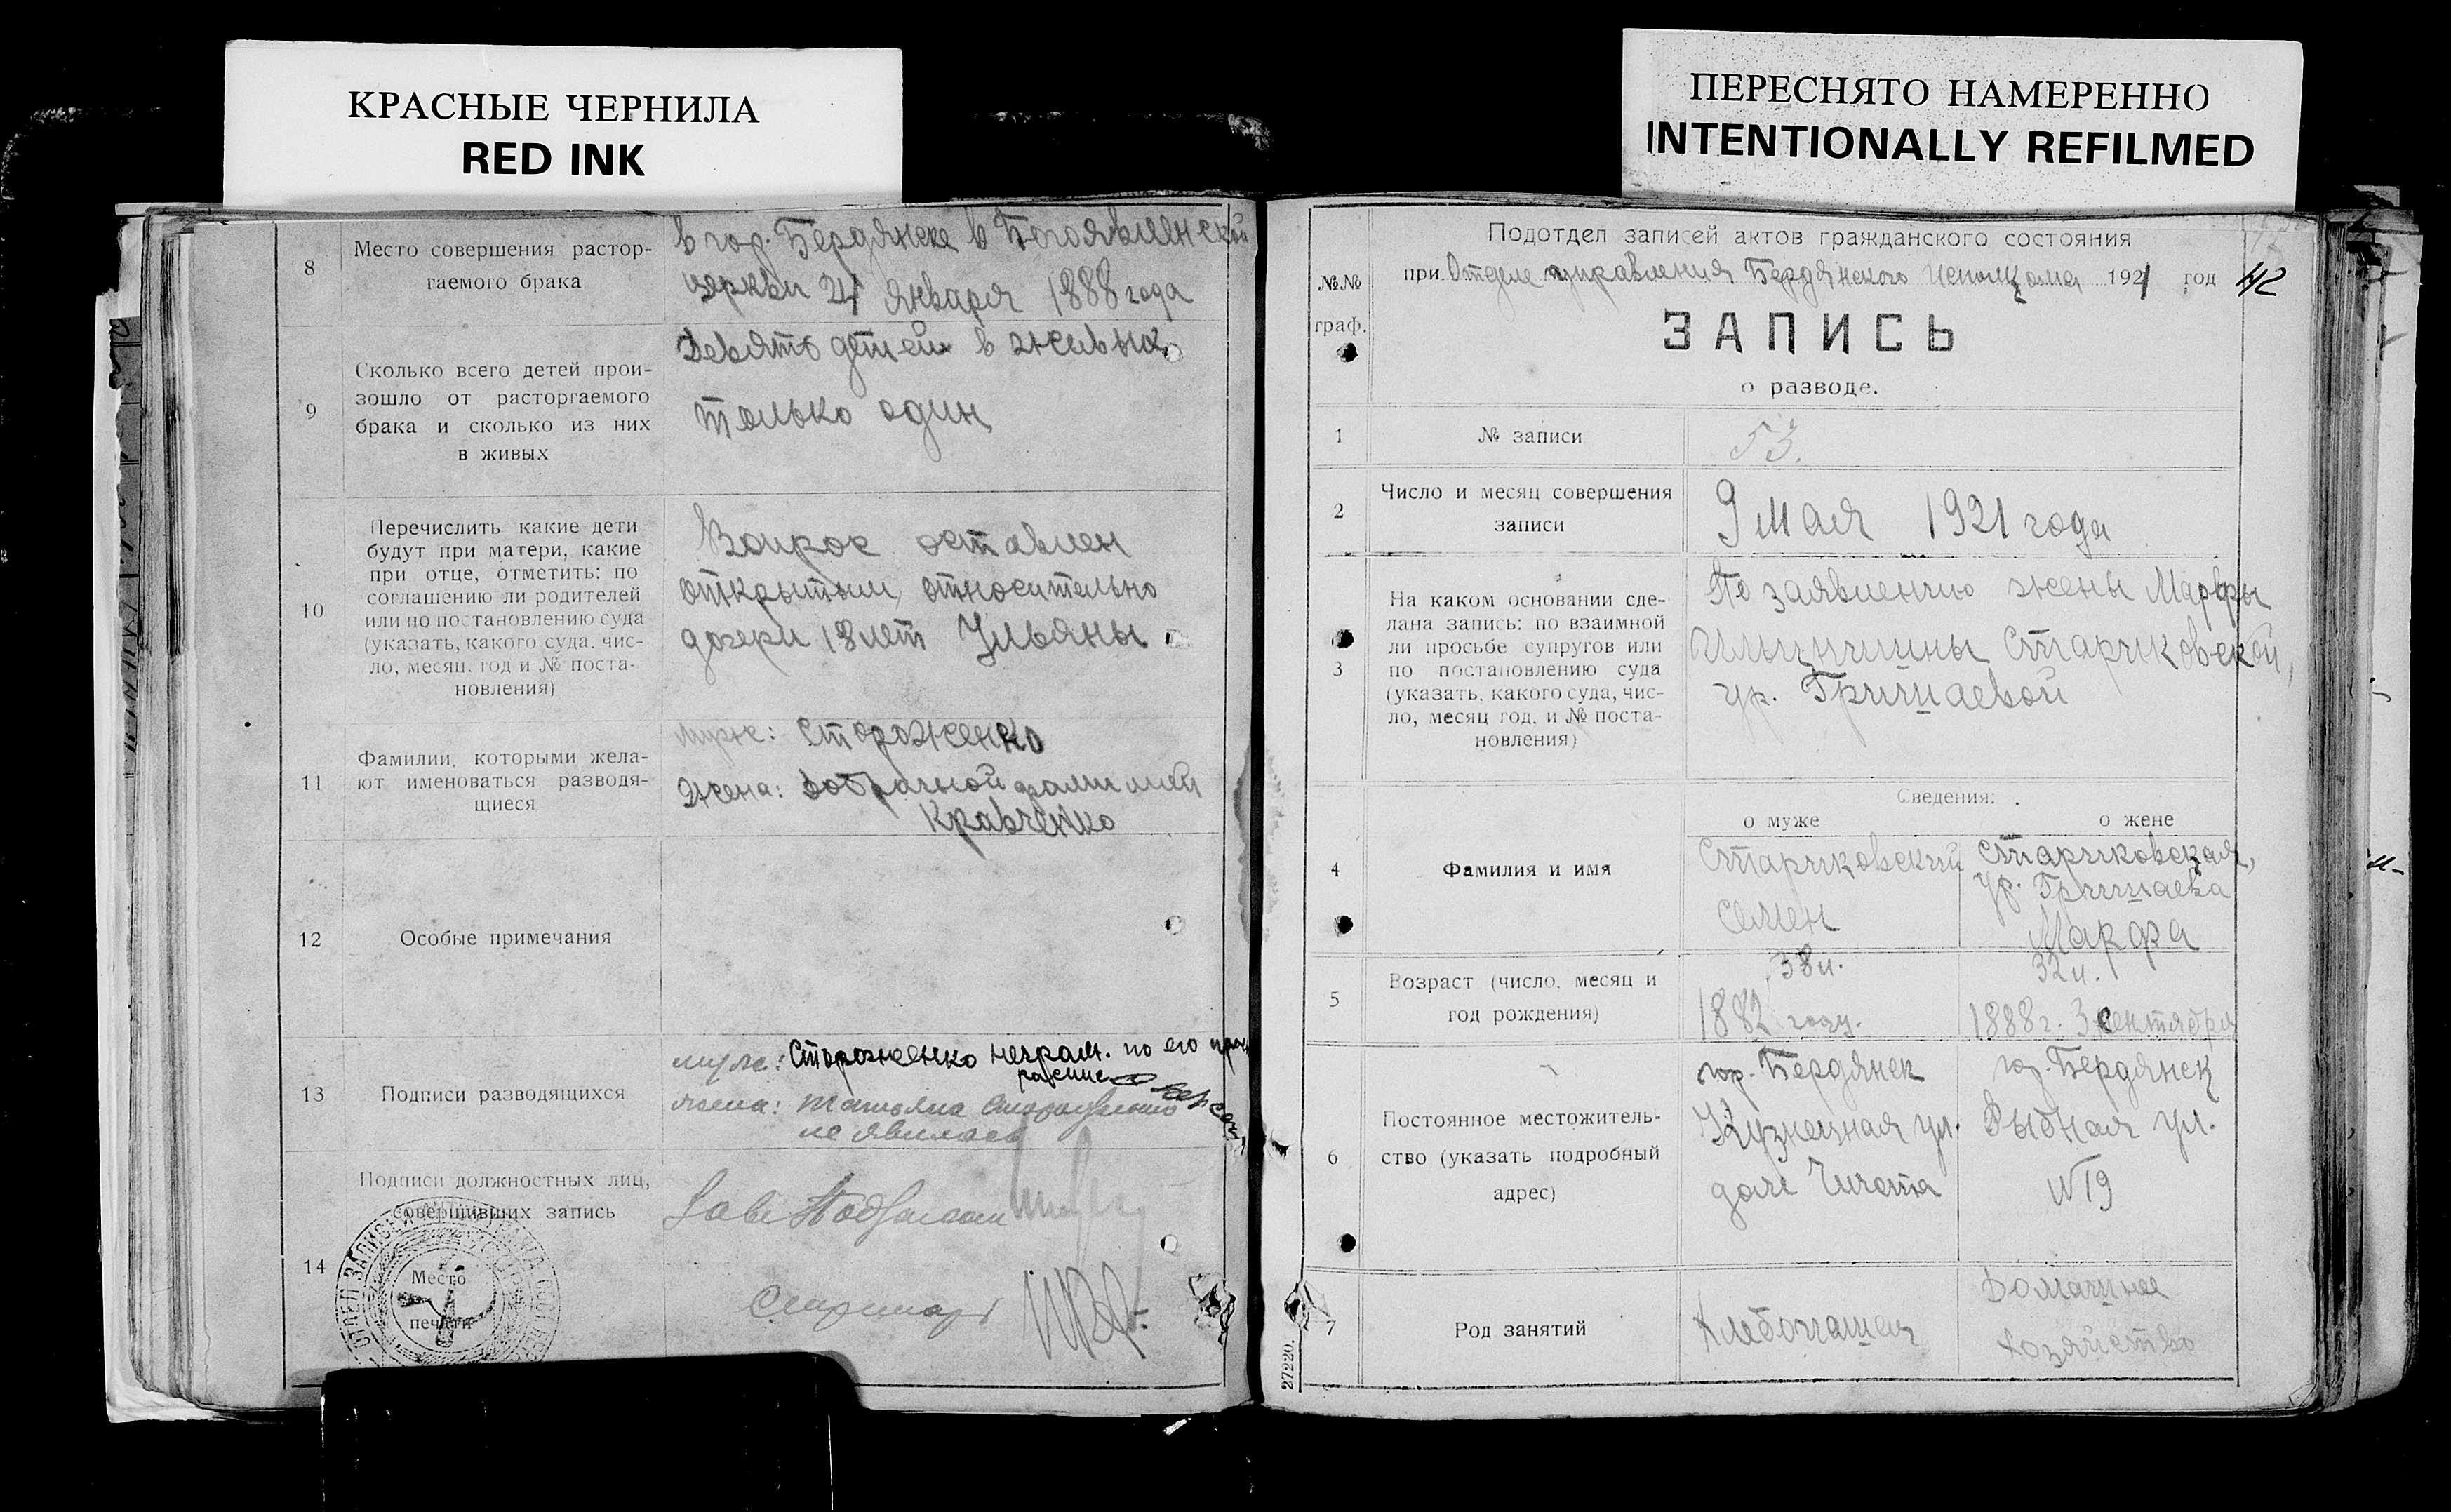 КРАСНЫЕ ЧЕРНИЛА
RED INK
ПЕРЕСНЯТО НАМЕРЕННО
INTENTIONALLY REFILMED
8
Место совершения растор-
гаемого брака
в гор. Бердянске в Богоявленской
церкви 24 января 1888 года
9
Сколько всего детей прои-
зошло от расторгаемого
брака и сколько из них
в живых
Девять детей в живых
только один
10
Перечислить какие дети
будут при матери, какие
при отце, отметить: по
соглашению ли родителей
или по постановлению суда
(указать, какого суда, чис-
ло, месяц, год и № поста-
новления)
Вопрос оставлен
открытым, относительно
дочери 18 лет Ульяны
11
Фамилии, которыми жела-
ют именоваться разводя-
щиеся
муж: Стороженко
Жена: добрачной фамилией
Кравченко
12
Особые примечания
13
Подписи разводящихся
муж: Стороженко неграм. по его
жена: Татьяна Стороженко
не явилась
14
Подписи должностных лиц,
совершивших запись
Зав. Подотделом
Секретарь
Место
печати
№№
граф.
Подотдел записей актов гражданского состояния
при Отделе управления Бердянского Исполкома 1921 год
42
ЗАПИСЬ
о разводе.
1
№ записи
53.
2
Число и месяц совершения
записи
9 мая 1921 года
3
На каком основании сде-
лана запись: по взаимной
ли просьбе супругов или
по постановлению суда
(указать, какого суда, чис-
ло, месяц год, и № поста-
новления)
По заявлению жены Марфы
Ильиничны Стариковской,
ур. Гришаевой
Сведения:
о муже
о жене
4
Фамилия и имя
Стариковский
Семен
Стариковская,
ур. Гришаева
Марфа
5
Возраст (число, месяц и
год рождения)
38 л.
1882 году.
32 л.
1888 г. 3 сентября
6
Постоянное местожитель-
ство (указать подробный
адрес)
гор. Бердянск
Кузнечная ул.
дом
гор. Бердянск
Рыбная ул.
№ 19
7
Род занятий
Хлебопашец
Домашнее
хозяйство
27220.